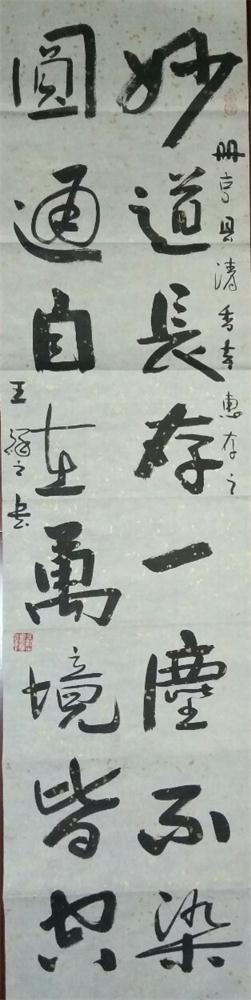 册亨县清香寺惠存之
妙道長存一塵不染
圓通自在萬境皆空
王緣之书